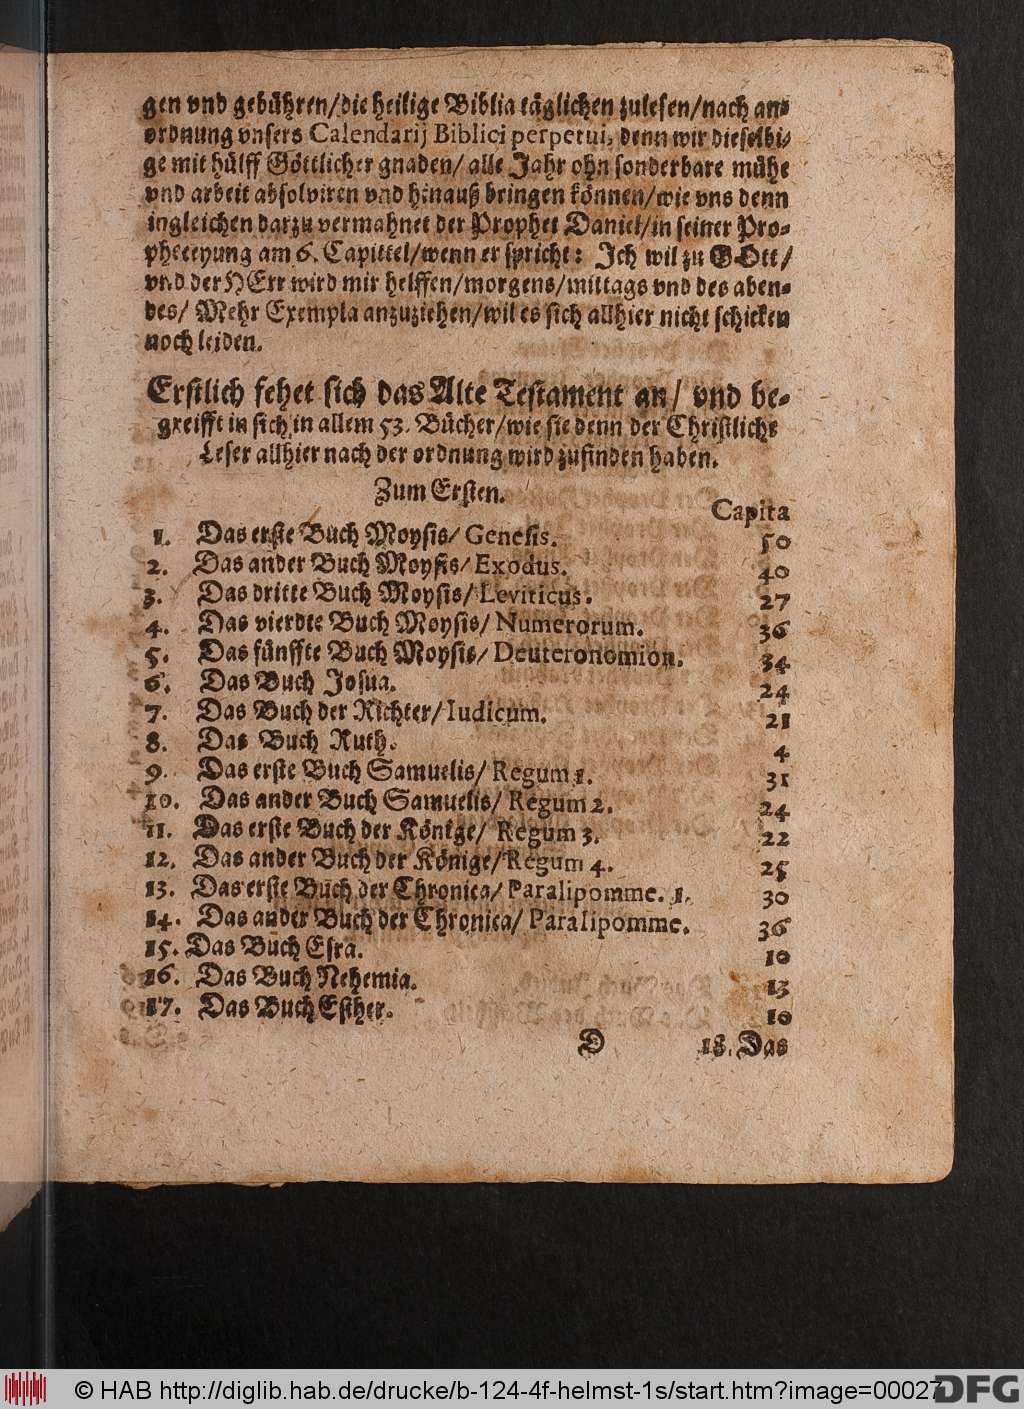 gen vnd gebühren/die heilige Biblia täglichen zulesen/nach an-
ordnung vnsers Calendarij Biblici perpetui, denn wir dieselbi-
ge mit hülff Göttlicher gnaden/ alle Jahr ohn sonderbare mühe
vnd arbeit absolviren vnd hinauß bringen können/wie vns denn
ingleichen darzu vermahnet der Prophet Daniel/in seiner Pro-
pheceyung am 6. Capittel/wenn er spricht: Ich wil zu GOtt/
vnd der HErr wird mir helffen/morgens/mittags vnd des aben-
des/ Mehr Exempla anzuziehen/wil es sich allhier nicht schicken
noch leiden.
Erstlich fehet sich das Alte Testament an/ vnd be-
greifft in sich in allem 53. Bücher/wie sie denn der Christliche
Leser allhier nach der ordnung wird zufinden haben.
Zum Ersten.
Capita
1. Das erste Buch Moysis/ Genesis. 50
2. Das ander Buch Moysis/ Exodus. 40
3. Das dritte Buch Moysis/ Leviticus. 27
4. Das vierdte Buch Moysis/ Numerorum. 36
5. Das fünffte Buch Moysis/ Deuteronomion. 34
6. Das Buch Josua. 24
7. Das Buch der Richter/ Iudicum. 21
8. Das Buch Ruth. 4
9. Das erste Buch Samuelis/ Regum 1. 31
10. Das ander Buch Samuelis/ Regum 2. 24
11. Das erste Buch der Könige/ Regum 3. 22
12. Das ander Buch der Könige/ Regum 4. 25
13. Das erste Buch der Chronica/ Paralipomme. 1. 30
14. Das ander Buch der Chronica/ Paralipomme. 36
15. Das Buch Esra. 10
16. Das Buch Nehemia. 13
17. Das Buch Esther. 10
D 18. Das
© HAB http://diglib.hab.de/drucke/b-124-4f-helmst-1s/start.htm?image=00027
DFG